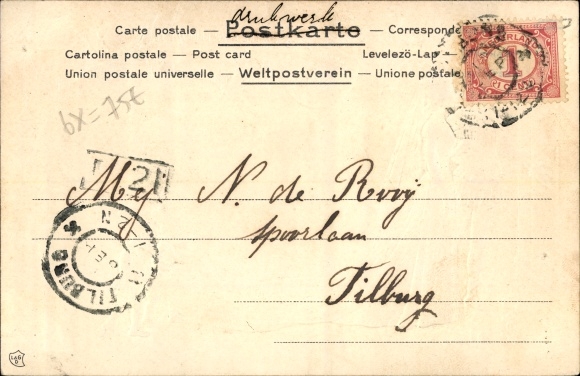 drukwerk
Carte postale — Postkarte — Correspond
Cartolina postale — Post card Levelező-Lap
Union postale universelle — Weltpostverein — Unione postale
bx=75t
Mej N. de Rooÿ
Spoorlaan
Tilburg
TILBURG